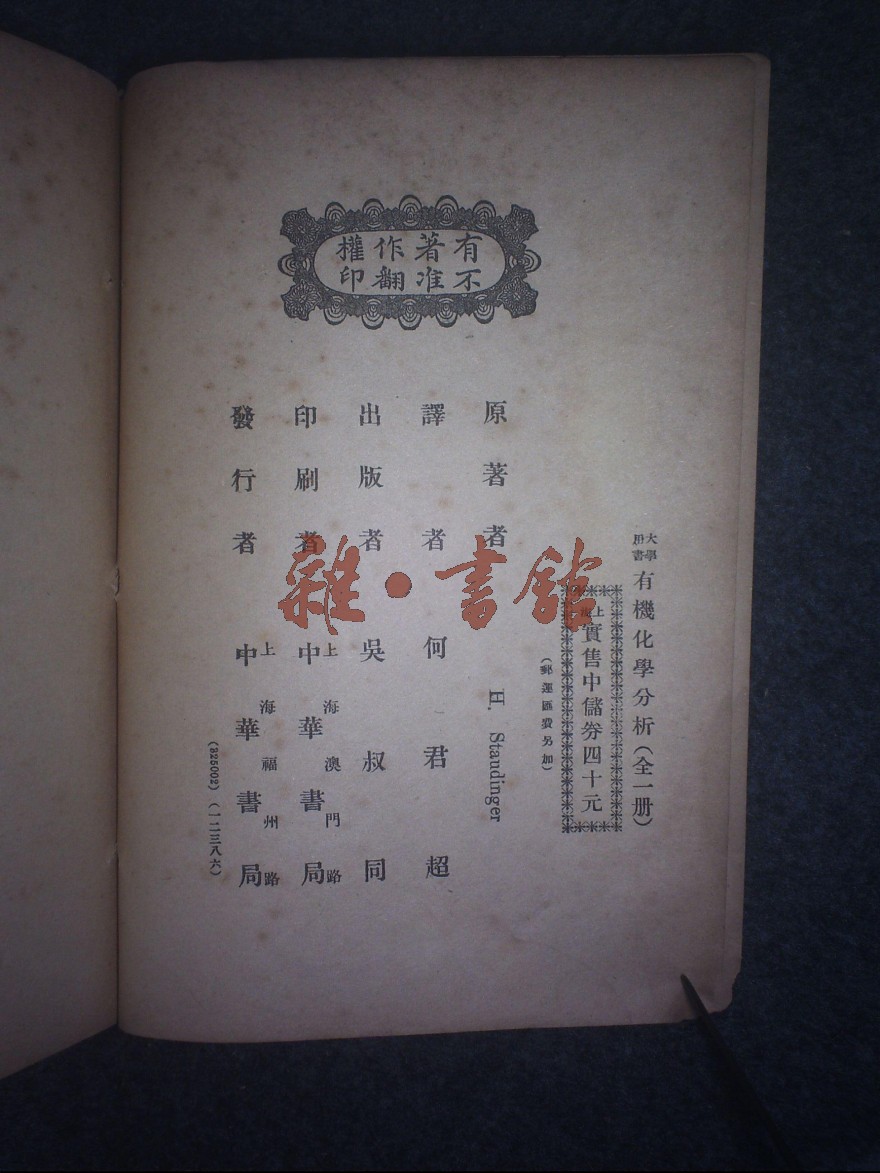 有著作權
不准翻印
大學用書
有機化學分析(全一册)
上海
實售中儲券四十元
(郵運匯費另加)
原著者 H. Staudinger
譯者 何君超
出版者 吳叔同
印刷者 上海澳門路
中華書局
發行者 上海福州路
中華書局
(一二三八六)
(825002)
雜·書館